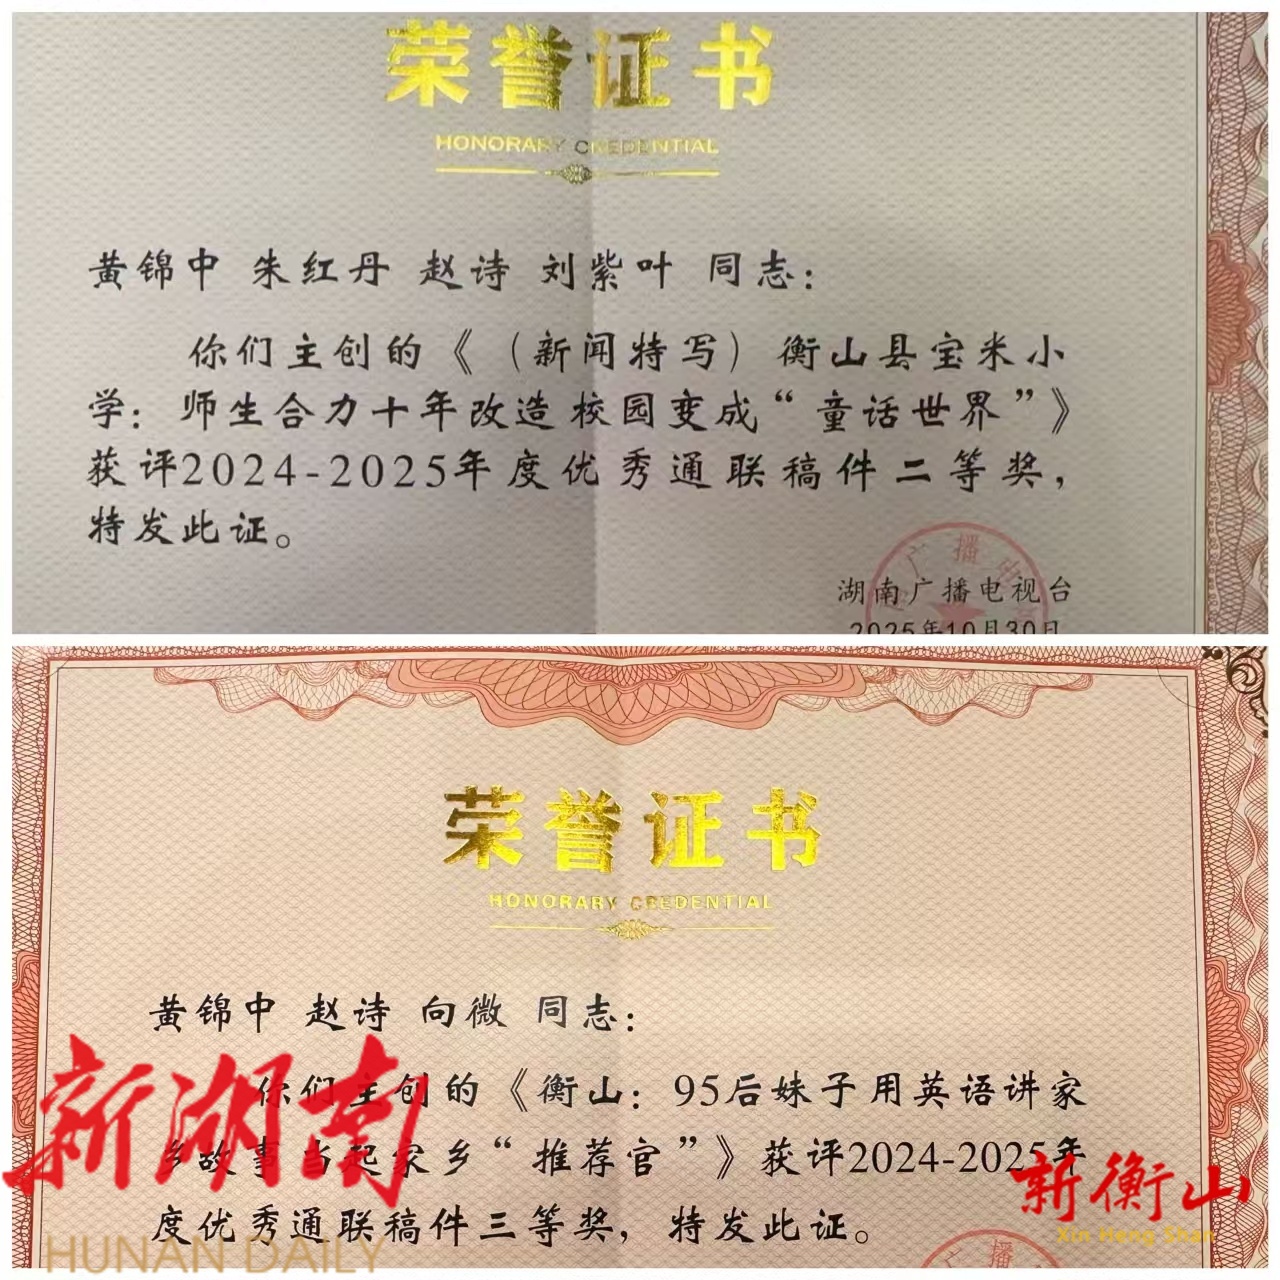 荣誉证书
HONORARY CREDENTIAL
黄锦中 朱红丹 赵诗 刘紫叶 同志：
你们主创的《（新闻特写）衡山县宝米小
学：师生合力十年改造校园变成“童话世界”》
获评2024-2025年度优秀通联稿件二等奖，
特发此证。
广播电
湖南广播电视台
2025年10月30日
荣誉证书
HONORARY CREDENTIAL
黄锦中 赵诗 向微 同志：
你们主创的《衡山：95后妹子用英语讲家
乡故事当起家乡“推荐官”》获评2024-2025年
度优秀通联稿件三等奖，特发此证。
广播
新湖南
HUNAN DAILY
新衡山
Xin Heng Shan